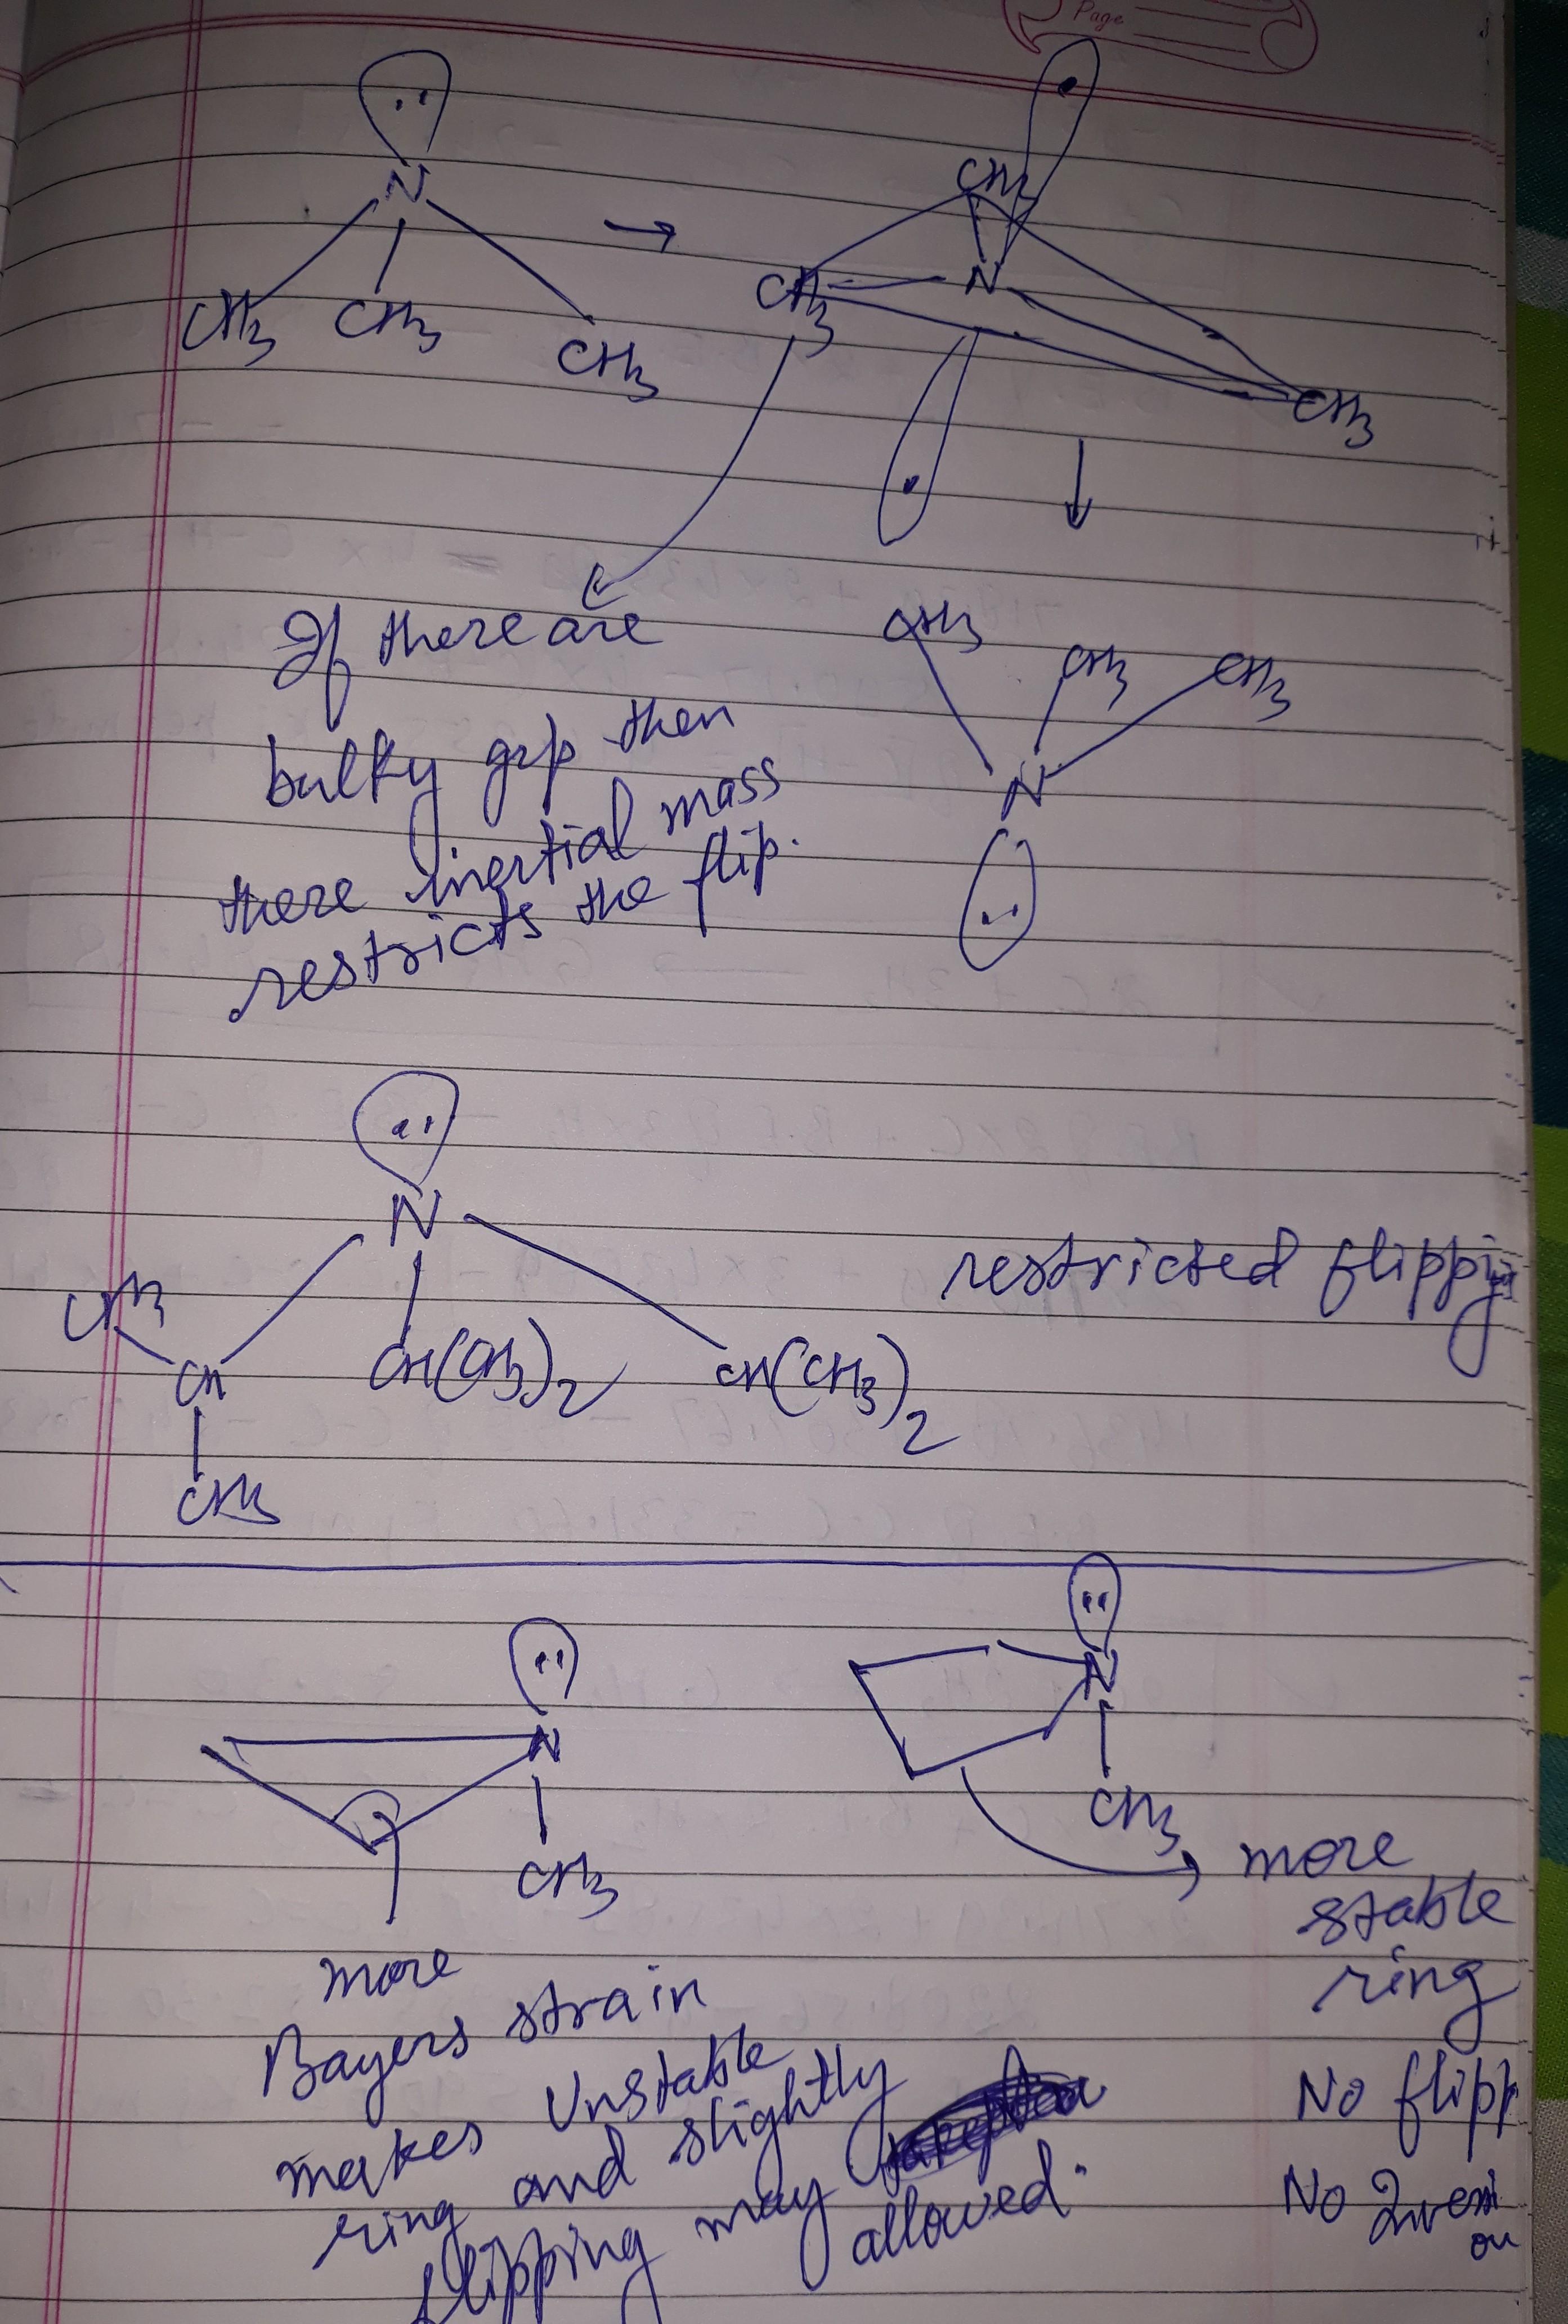 Page
N
CH3 CH3 CH3
→
CH3
CH3 N
CH3
If there are
bulky grp then
there inertial mass
restricts the flip.
CH3 CH3 CH3
N
N
CH3
CH CH(CH3)2 CH(CH3)2
CH3
restricted flipping
N
CH3
more
Bayers strain
makes Unstable
ring and slightly
flipping may
allowed.
N
CH3
more
stable
ring
No flipp
No Inversi
on